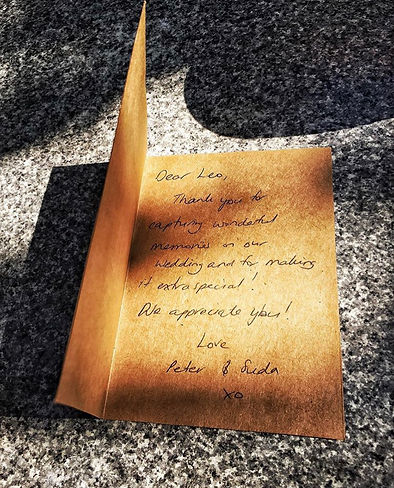 Dear Leo,
Thank you for
capturing wonderful
memories on our
wedding and for making
it extra special!
We appreciate you!
Love
Peter & Suda
xo